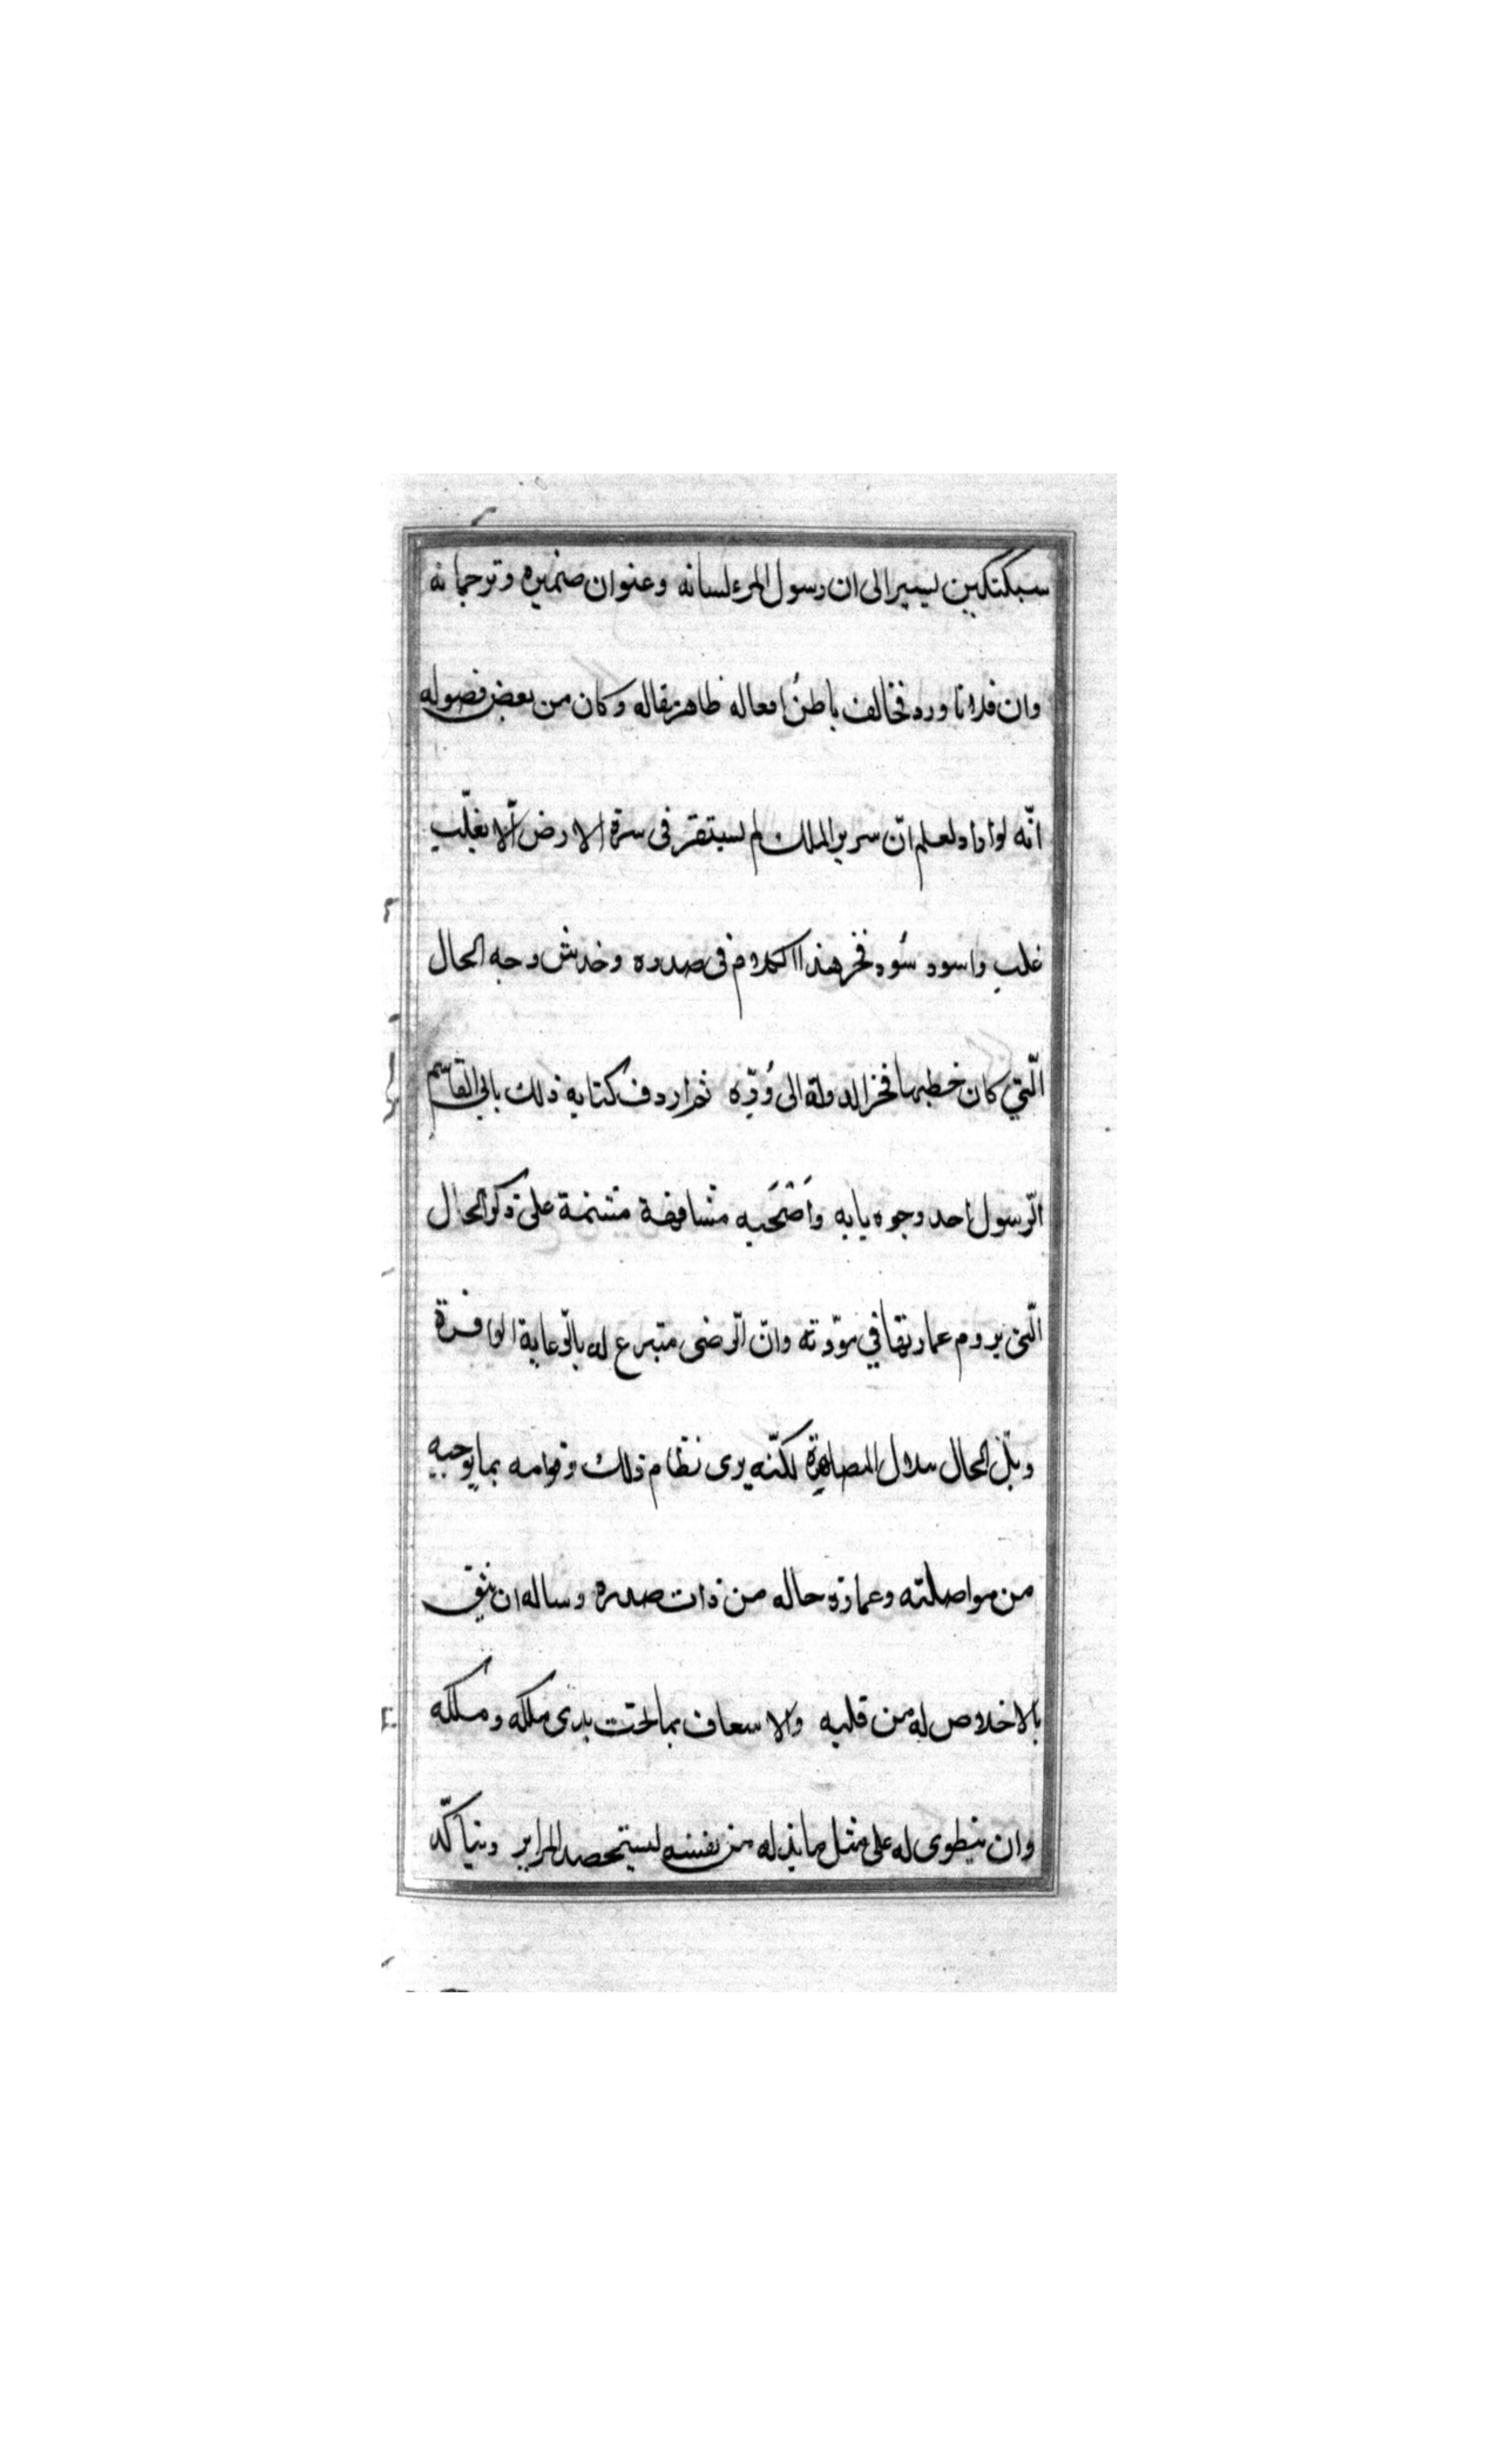 سبكتكين يسير الى ان رسول المرء لسانه وعنوان ضميره وترجمانه
وان فلانا ورد فخالف باطنُ افعاله ظاهر مقاله وكان من بعض فصوله
انّه لو اراد لعلم انّ سرير الملك لم يستقر فى سرة الارض الّا بغلّب
غلب واسود سُود فخر هذا الكلام فى صدره وخدش وجه الحال
الّتي كان خطبها فخر الدولة الى وُدّه ثم اردف كتابه ذلك بابي القاسم
الرّسول احد وجوه بابه وَاَصْحَبه مشافهة مشتملة على ذكر الحال
الّتى يروم عمارتها في مودّته وانّ الرّضى متبرع له بالرّعاية الوافرة
وبلّ الحال ببلال المصاهرة لكنّه يرى نظام ذلك وقوامه بما يوجبه
من مواصلته وعمارة حاله من ذات صدره وساله ان يثق
بالاخلاص له من قلبه والاسعاف بما تحت يدى ملكه ومسلكه
وان ينطوى له على مثل ما بذله من نفسه ليستحصد المراير ويتاكّد